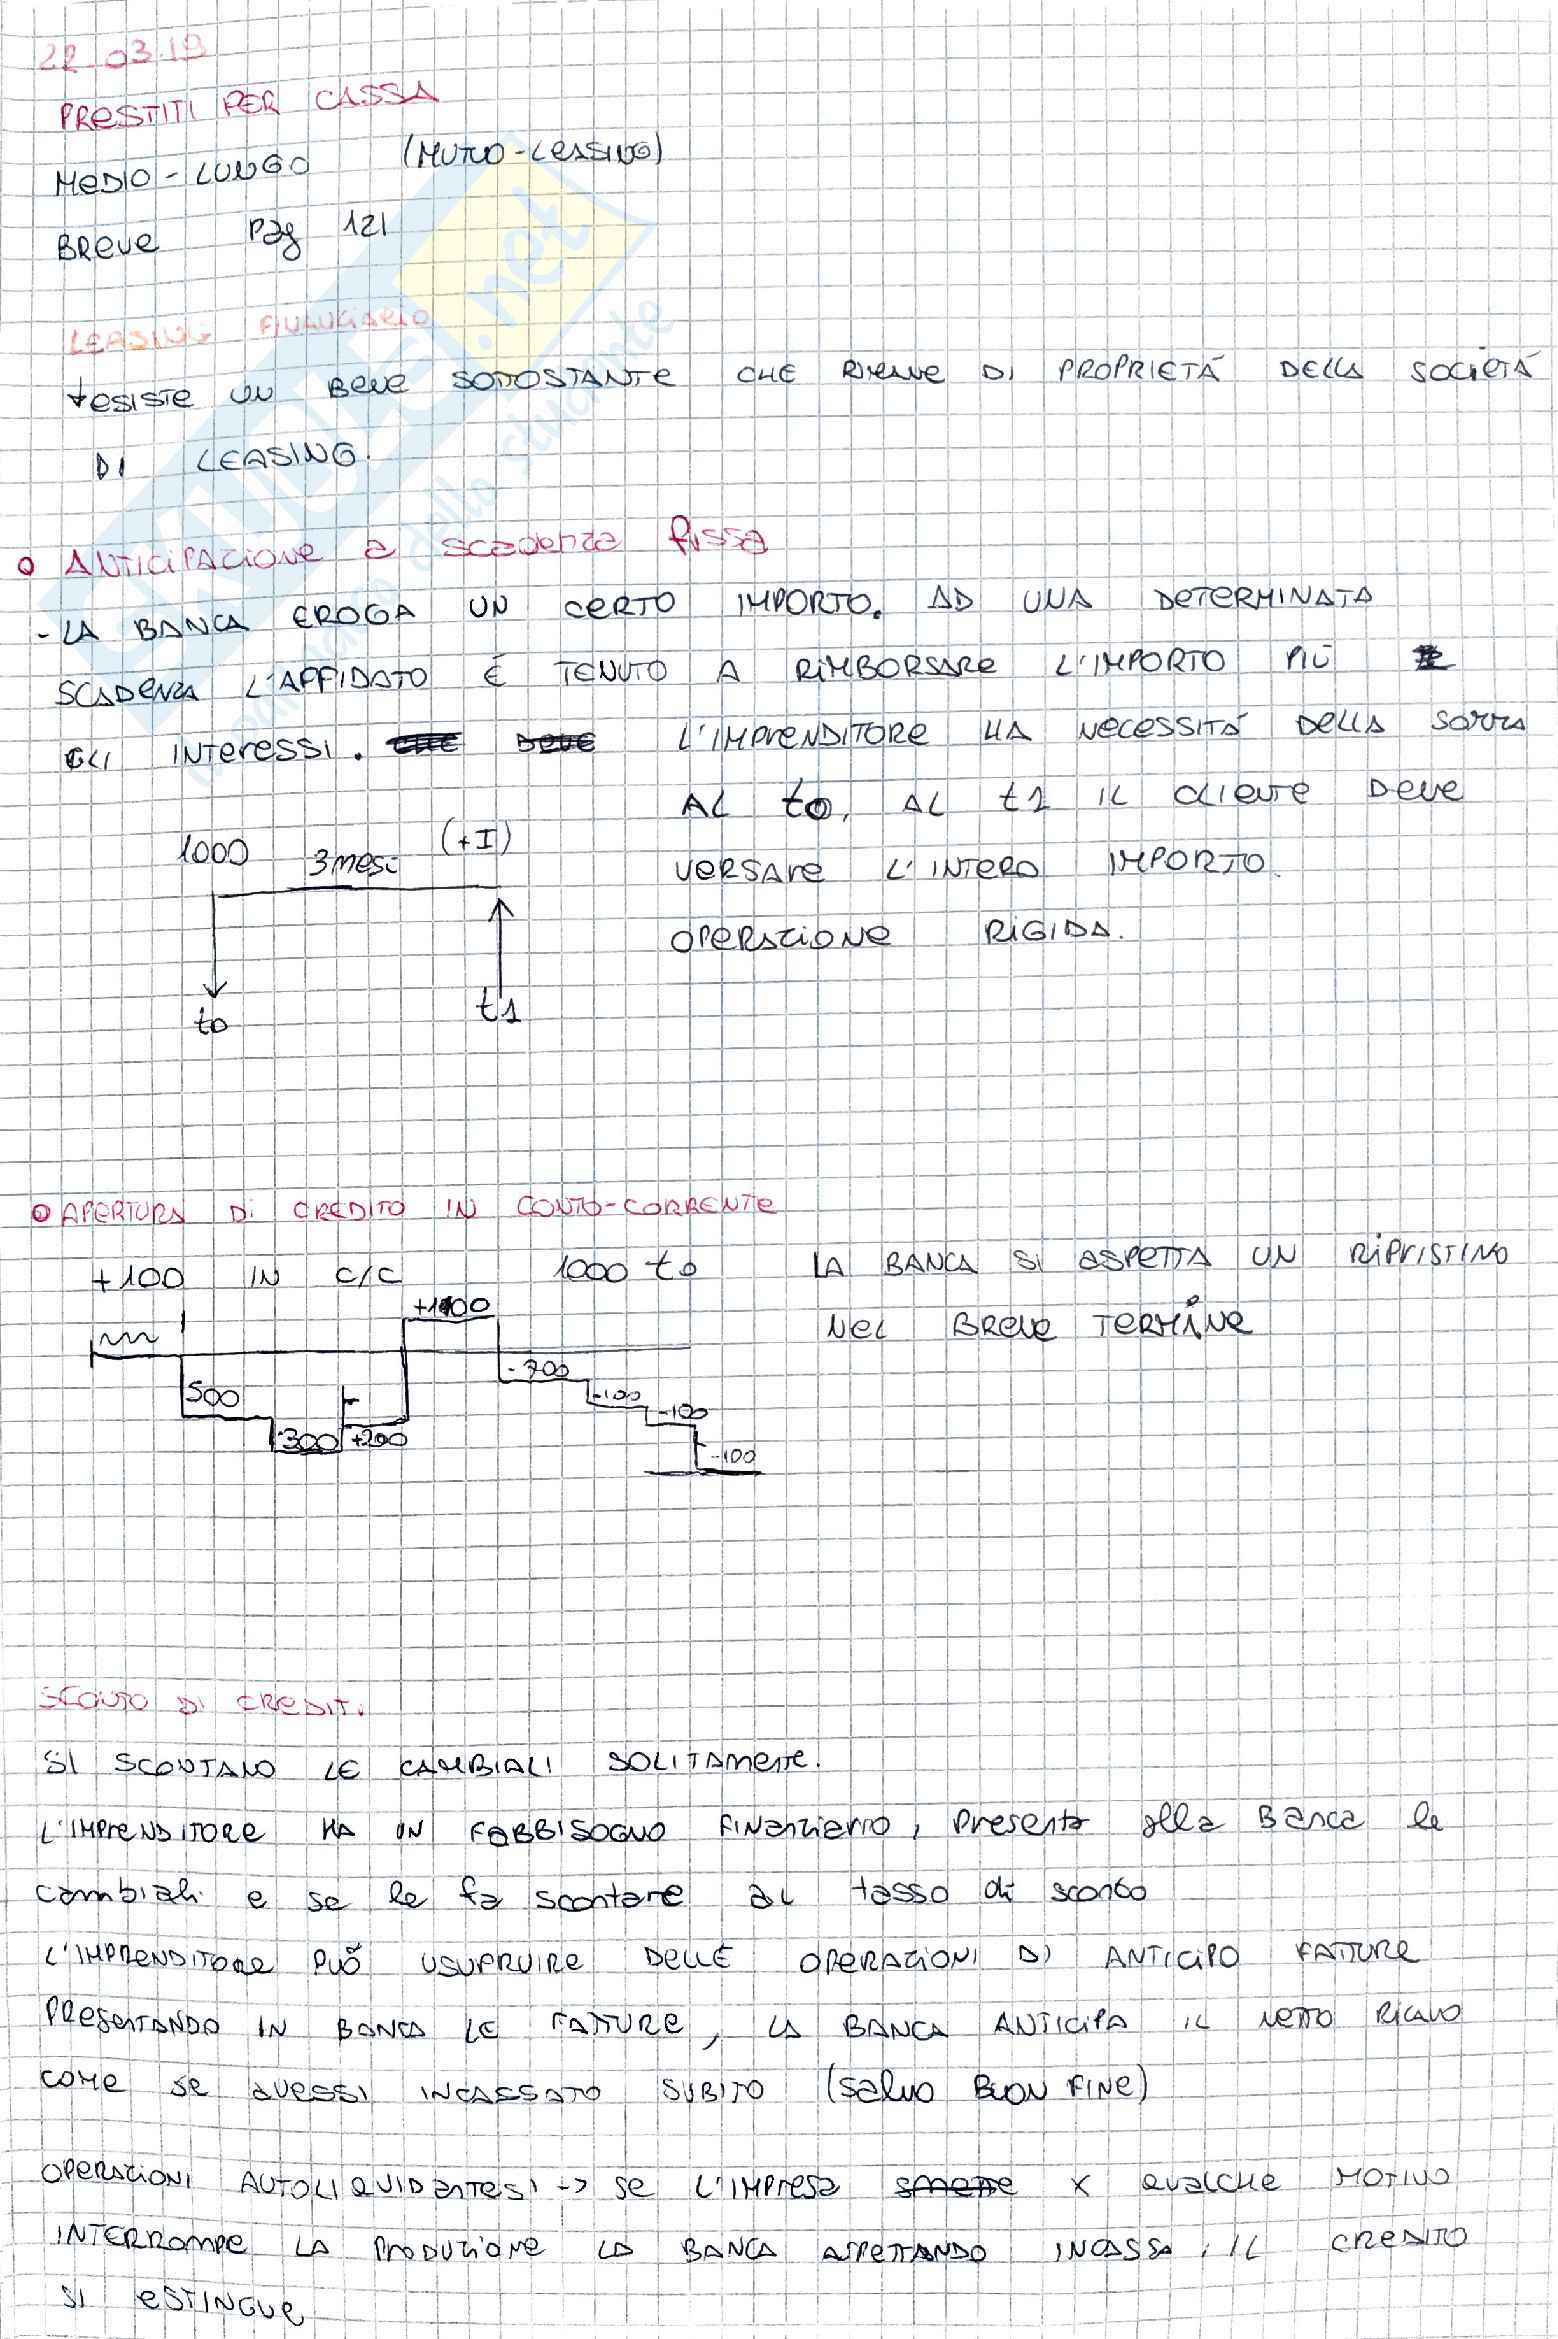 22.03.19
PRESTITI PER CASSA
MEDIO-LUNGO (MUTUO-LEASING)
BREVE Pag 121
LEASING
→ esiste UN BENE SOTTOSTANTE CHE RIMANE DI PROPRIETÀ DELLA SOCIETÀ
DI LEASING.
ANTICIPAZIONE a scadenza fissa
- LA BANCA EROGA UN CERTO IMPORTO. AD UNA DETERMINATA
SCADENZA L'AFFIDATO È TENUTO A RIMBORSARE L'IMPORTO PIÙ
GLI INTERESSI. L'IMPRENDITORE HA NECESSITÀ DELLA SOMMA
AL t0, AL t1 IL CLIENTE DEVE
1000 3 mesi (+I)
VERSARE L'INTERO IMPORTO.
OPERAZIONE RIGIDA.
t0 t1
APERTURA DI CREDITO IN CONTO-CORRENTE
+100 IN C/C 1000 t0 LA BANCA SI ASPETTA UN RIPRISTINO
NEL BREVE TERMINE
-700
500 -100
-100
300 +200
-100
SCONTO DI CREDITI
SI SCONTANO LE CAMBIALI SOLITAMENTE.
L'IMPRENDITORE HA UN FABBISOGNO FINANZIARIO, Presenta alla Banca le
cambiali e se le fa scontare al tasso di sconto
L'IMPRENDITORE PUÒ USUFRUIRE DELLE OPERAZIONI DI ANTICIPO FATTURE
PRESENTANDO IN BANCA LE FATTURE, LA BANCA ANTICIPA IL NETTO RICAVO
COME SE AVESSI INCASSATO SUBITO (salvo BUON FINE)
OPERAZIONI AUTOLIQUIDANTESI -> se L'IMPRESA smette X QUALCHE MOTIVO
INTERROMPE LA PRODUZIONE LA BANCA ASPETTANDO INCASSA, IL CREDITO
SI ESTINGUE